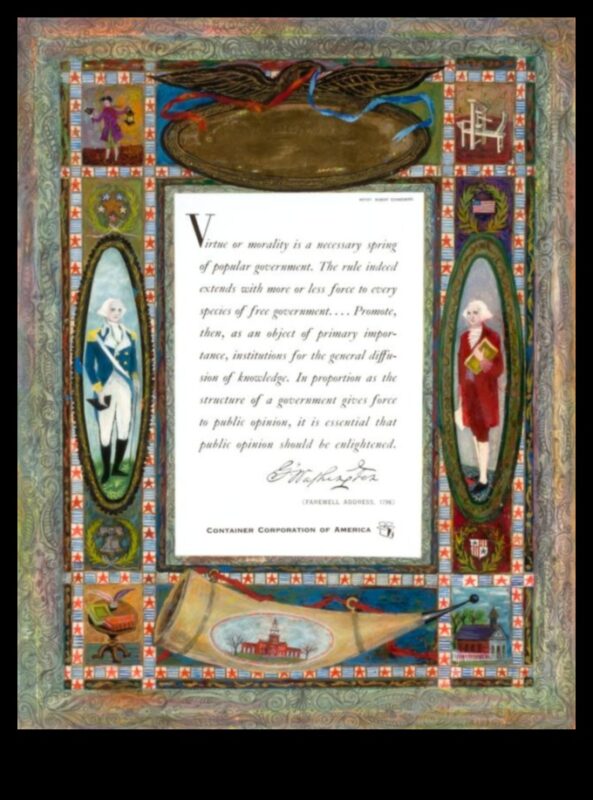 Virtue or morality is a necessary spring
of popular government. The rule indeed
extends with more or less force to every
species of free government.... Promote,
then, as an object of primary impor-
tance, institutions for the general diffu-
sion of knowledge. In proportion as the
structure of a government gives force
to public opinion, it is essential that
public opinion should be enlightened.
G Washington
(FAREWELL ADDRESS, 1796)
CONTAINER CORPORATION OF AMERICA